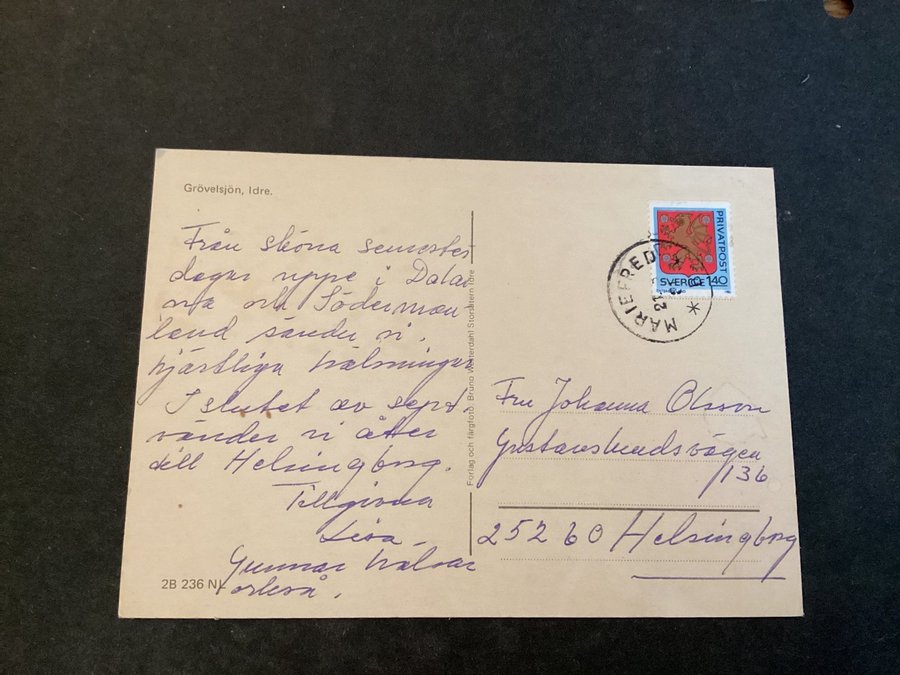 Grövelsjön, Idre.
Från sköna semester
dagar uppe i Dalar
na och Söderman
land sänder vi
hjärtliga hälsningar
I slutet av sept.
vänder vi åter
till Helsingborg.
Tillgivna
Lisa
Gunnar hälsar
också.
2B 236 NL
Förlag och färgfoto: Bruno Westerdahl Storsätern Idre
PRIVATPOST
SVERIGE 140
MARIEFRED
Fru Johanna Olsson
136
252 60 Helsingborg